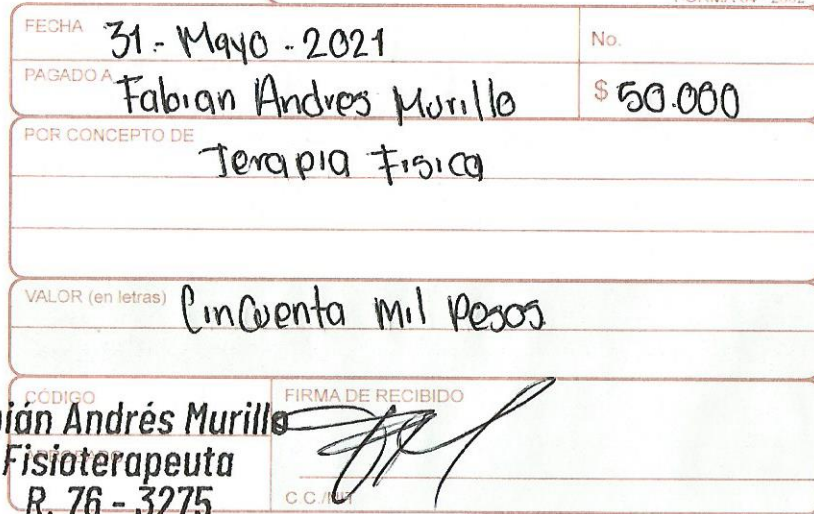 FECHA 31 - Mayo - 2021 No.
PAGADO A Fabian Andres Murillo $ 50.000
POR CONCEPTO DE
Terapia Fisica
VALOR (en letras) Cincuenta mil pesos
CÓDIGO FIRMA DE RECIBIDO
ián Andrés Murillo
Fisioterapeuta
R. 76 - 3275 C.C./NIT